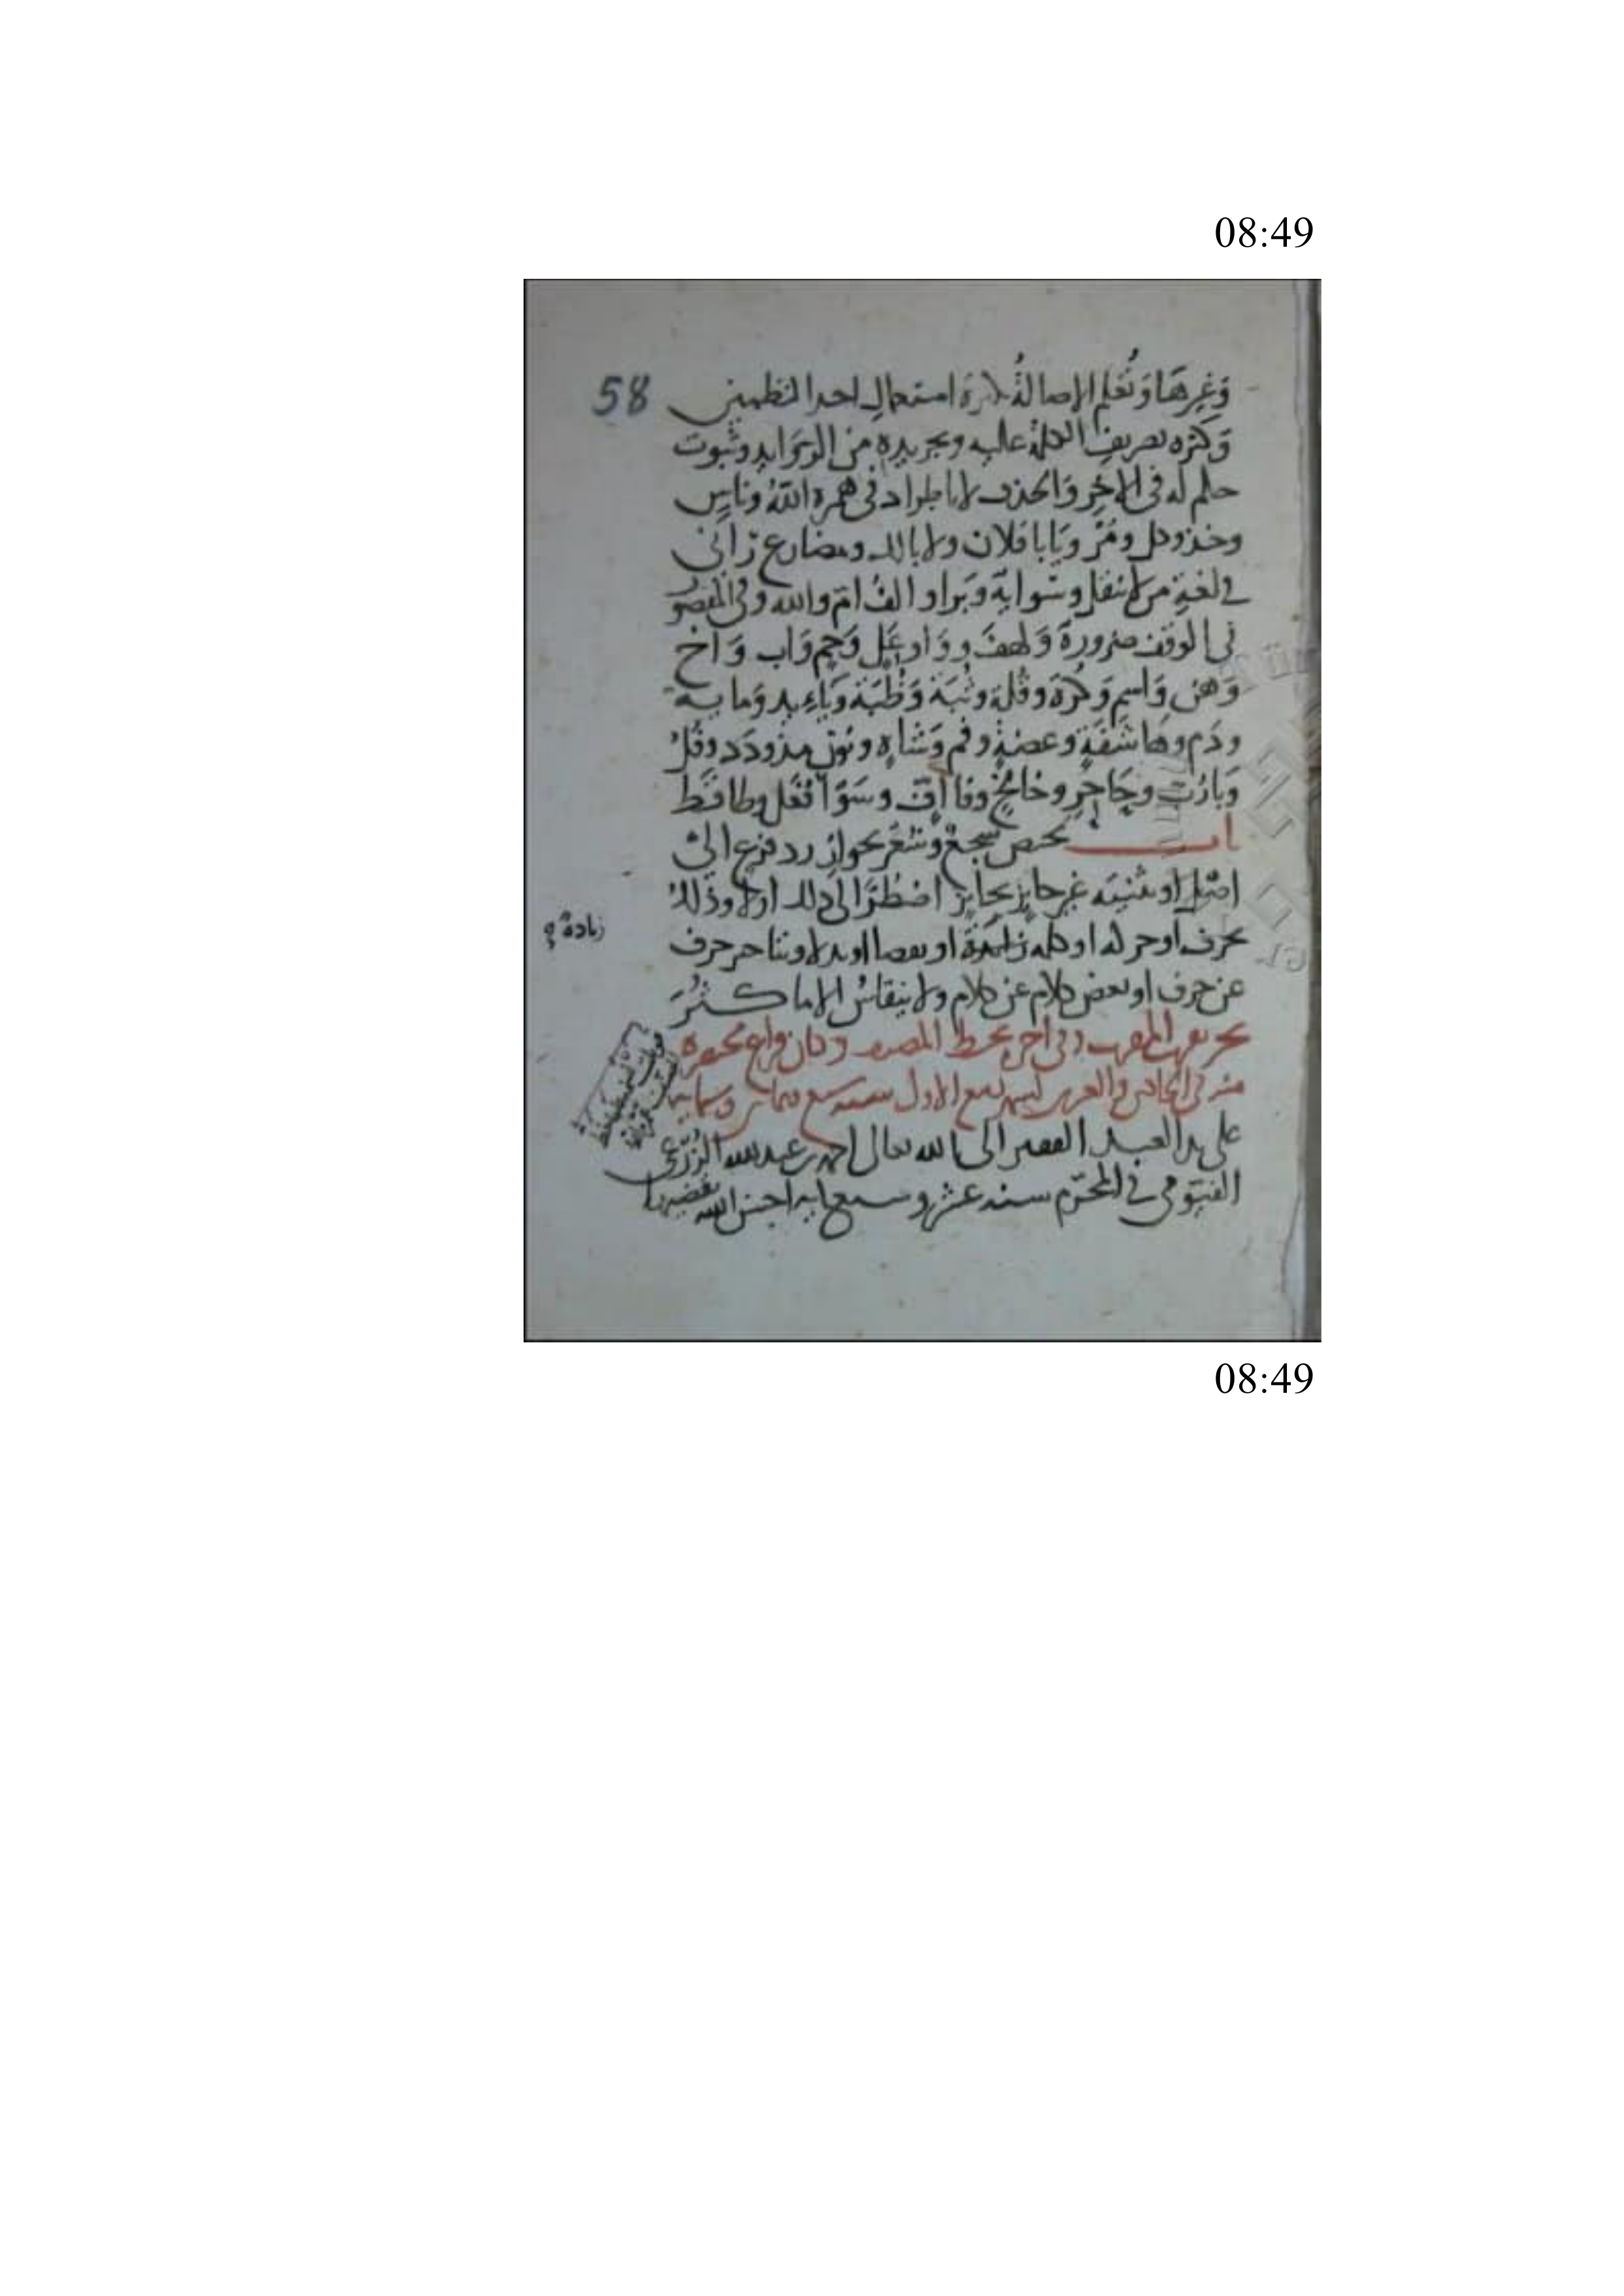 08:49
58
وَغيرهَا وَتُعْلم الاصالةُ بكثرة استعمالِ احد النظمين
وَكثرة تصريفِ الكلمة عليه وتجريده من الزوَايد وثبوت
حكم له في الاخِر وَالحذف لا باطراد في همزة اللهُ وناسٍ
وخذ وكل ومُرْ ويَا با فلان ولا با لك ومضارع رَاى
في لغةِ من لا ينقل وسَوايَة وبَراء والفُ امَ والله وفي المقصور
في الوقف ضرورة وَلهفَ وواو عَلِ وَحَمٍ وَاب وَاخ
وَهن وَاسم وَكُرَة وقُلة وثُبَة وَظُبَة وَياءِ يد وَمايه
ودَم وهَا شَفَةٍ وعضةٍ وفم وَشاهٍ ونونِ مذ ودَد وفُلُ
وَبارُبَ وحَاحِرٍ وخا بخْ وفا افّ وسَوْ افْعَل وطا قَط
باب يختص سجعٌ وَشعْر بجواز رد فرع الى
اصْلٍ او تشبيه غير جايز بجايز اضطُرّ الى ذلك اولا وذلك
بحرف او حركة او كلمة زيادةً او نقصا او بدلا وبتاخر حرف
زيادةً
عن حرف او بعض كلام عن كلام ولا ينقاسُ الا ما كثُرَ
نجز تقريب المقرب وفي اخره بخط المصنف وكان فراغ مختصره
منه في الحادي والعشرين لشهر ربيع الاول سنة سبع وثمانين وستمايه
على يد العبد الفقير الى الله تعالى احمد بن عبد الله الزُرَعي
الفيّومي في المحرّم سنة عشر وسبعمايه احسن الله تقضيها
08:49